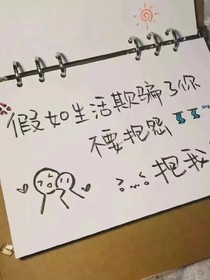 假如生活欺骗了你
不要抱怨
抱我